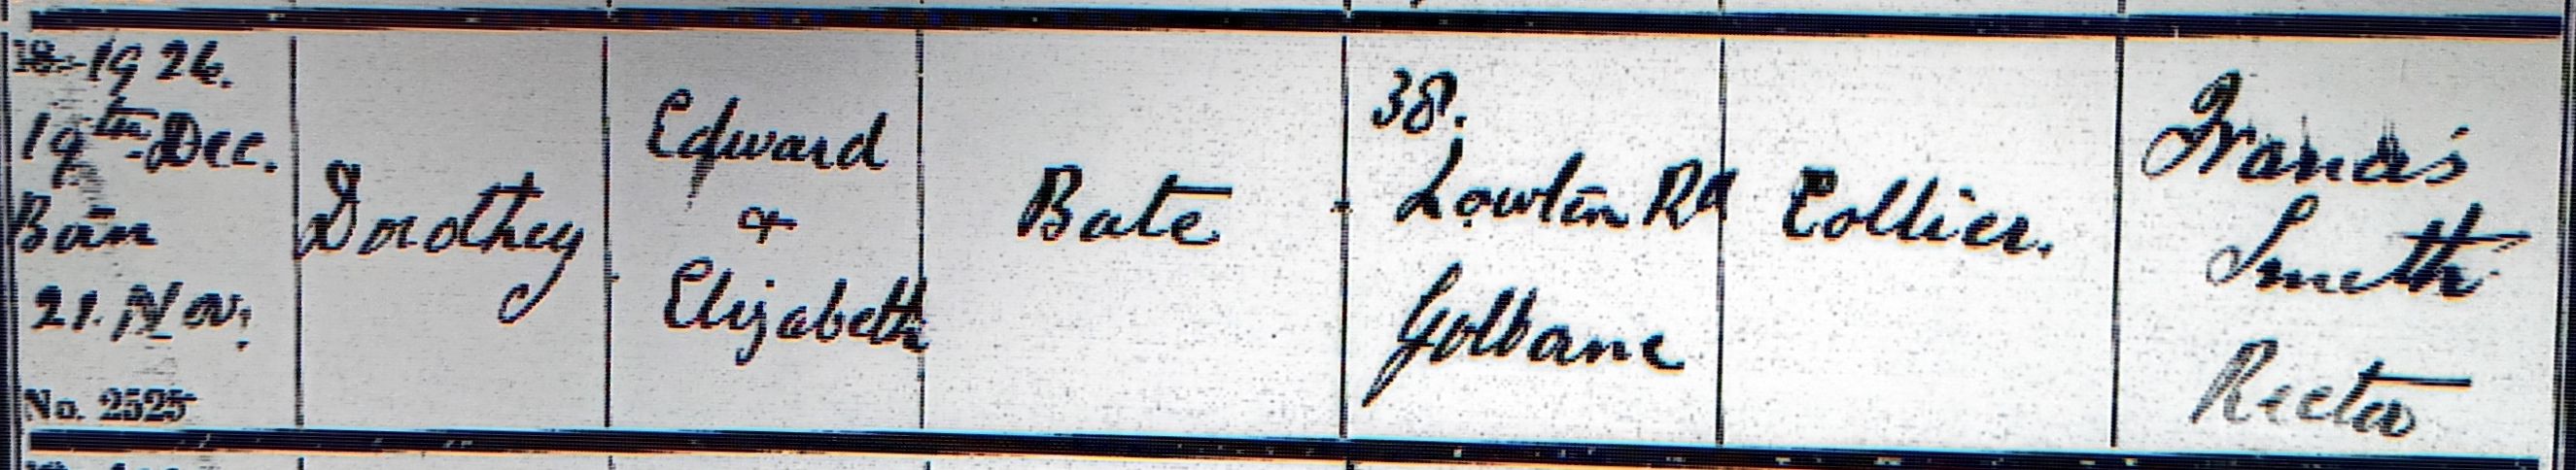 18 1926.
19th Dec.
Born
21. Nov.
No. 2525
Dorothy
Edward
&
Elizabeth
Bate
38.
Lowton Rd
Golborne
Collier.
Francis
Smith
Rector